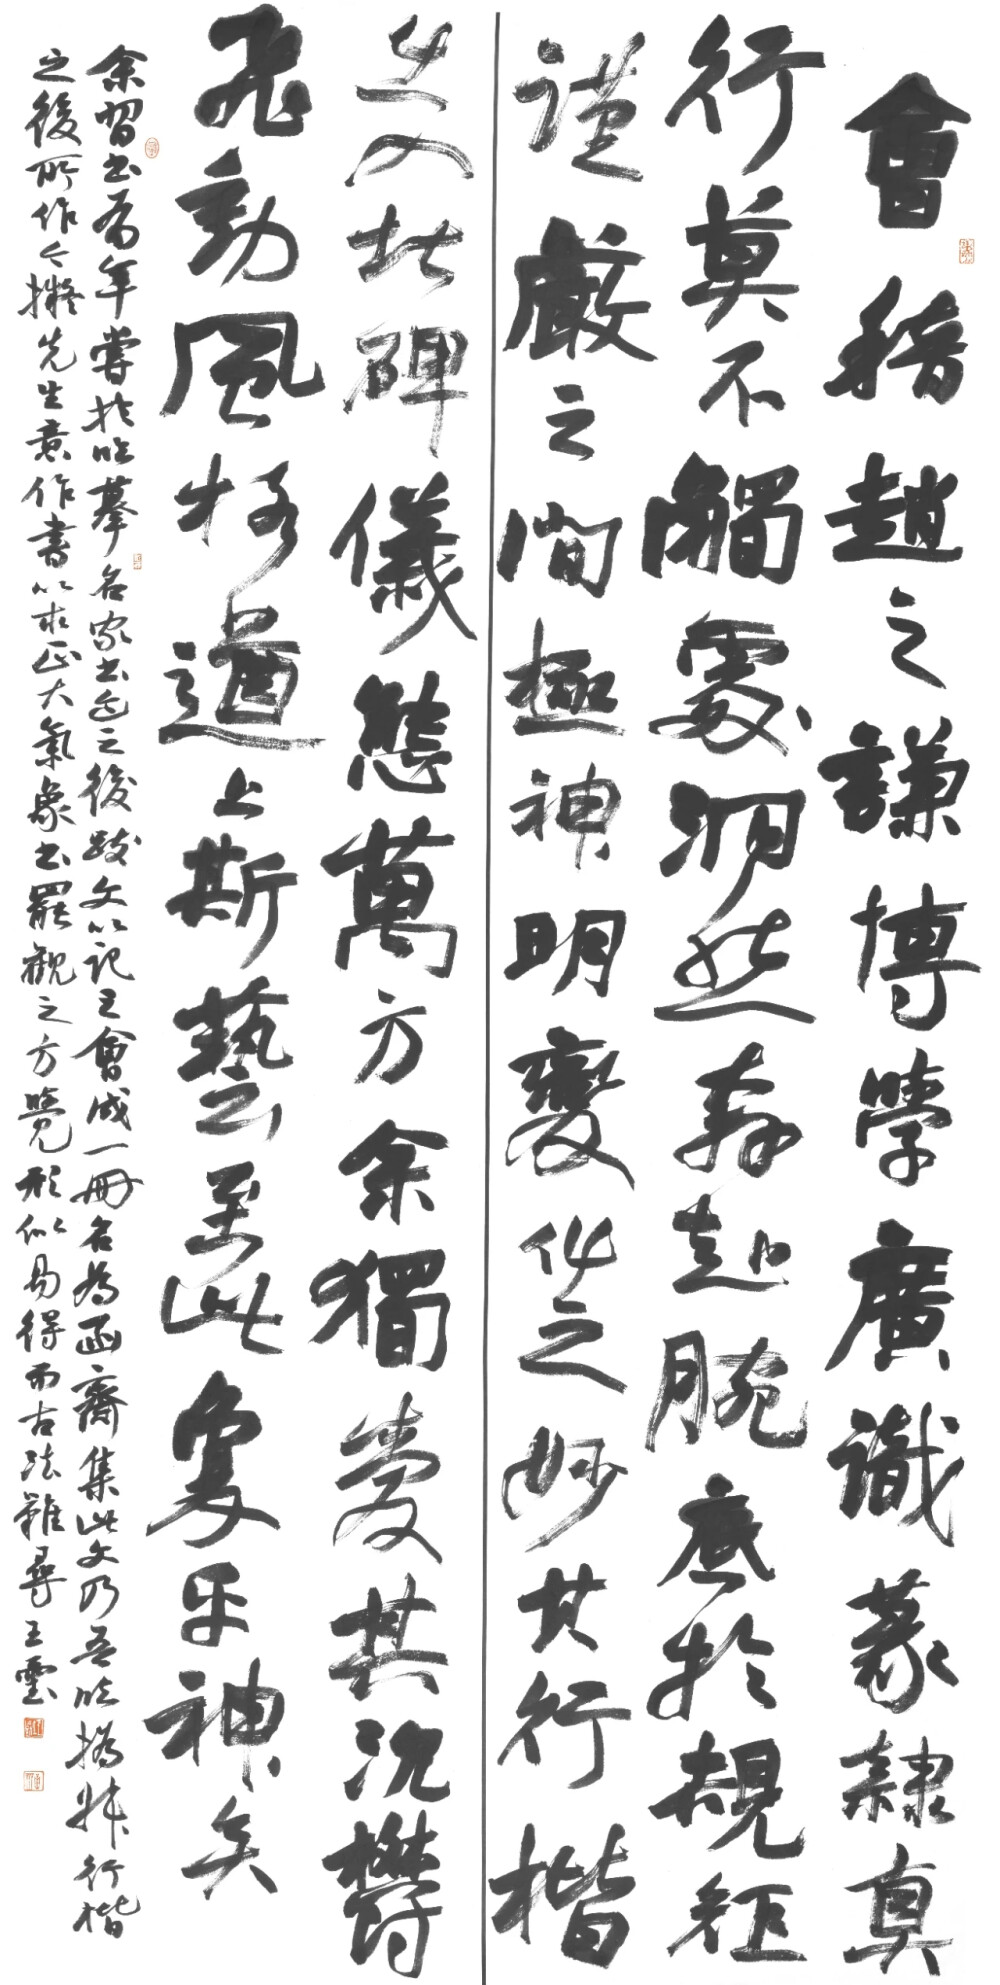 會稽趙之謙博學廣識篆隸真
行莫不觸處洞然奔起腕底於規矩
謹嚴之間極神明變化之妙其行楷
出入北碑儀態萬方余獨愛其沉鬱
飛動風格遒上斯藝至此象乎神矣
余習書有年嘗於臨摹名家書迹之後跋文以記之會成一冊名為函齋集此文乃吾臨撝叔行楷
之後所作今擬先生意作書以求正大氣象書罷觀之方覺形似易得而古法難尋王雪